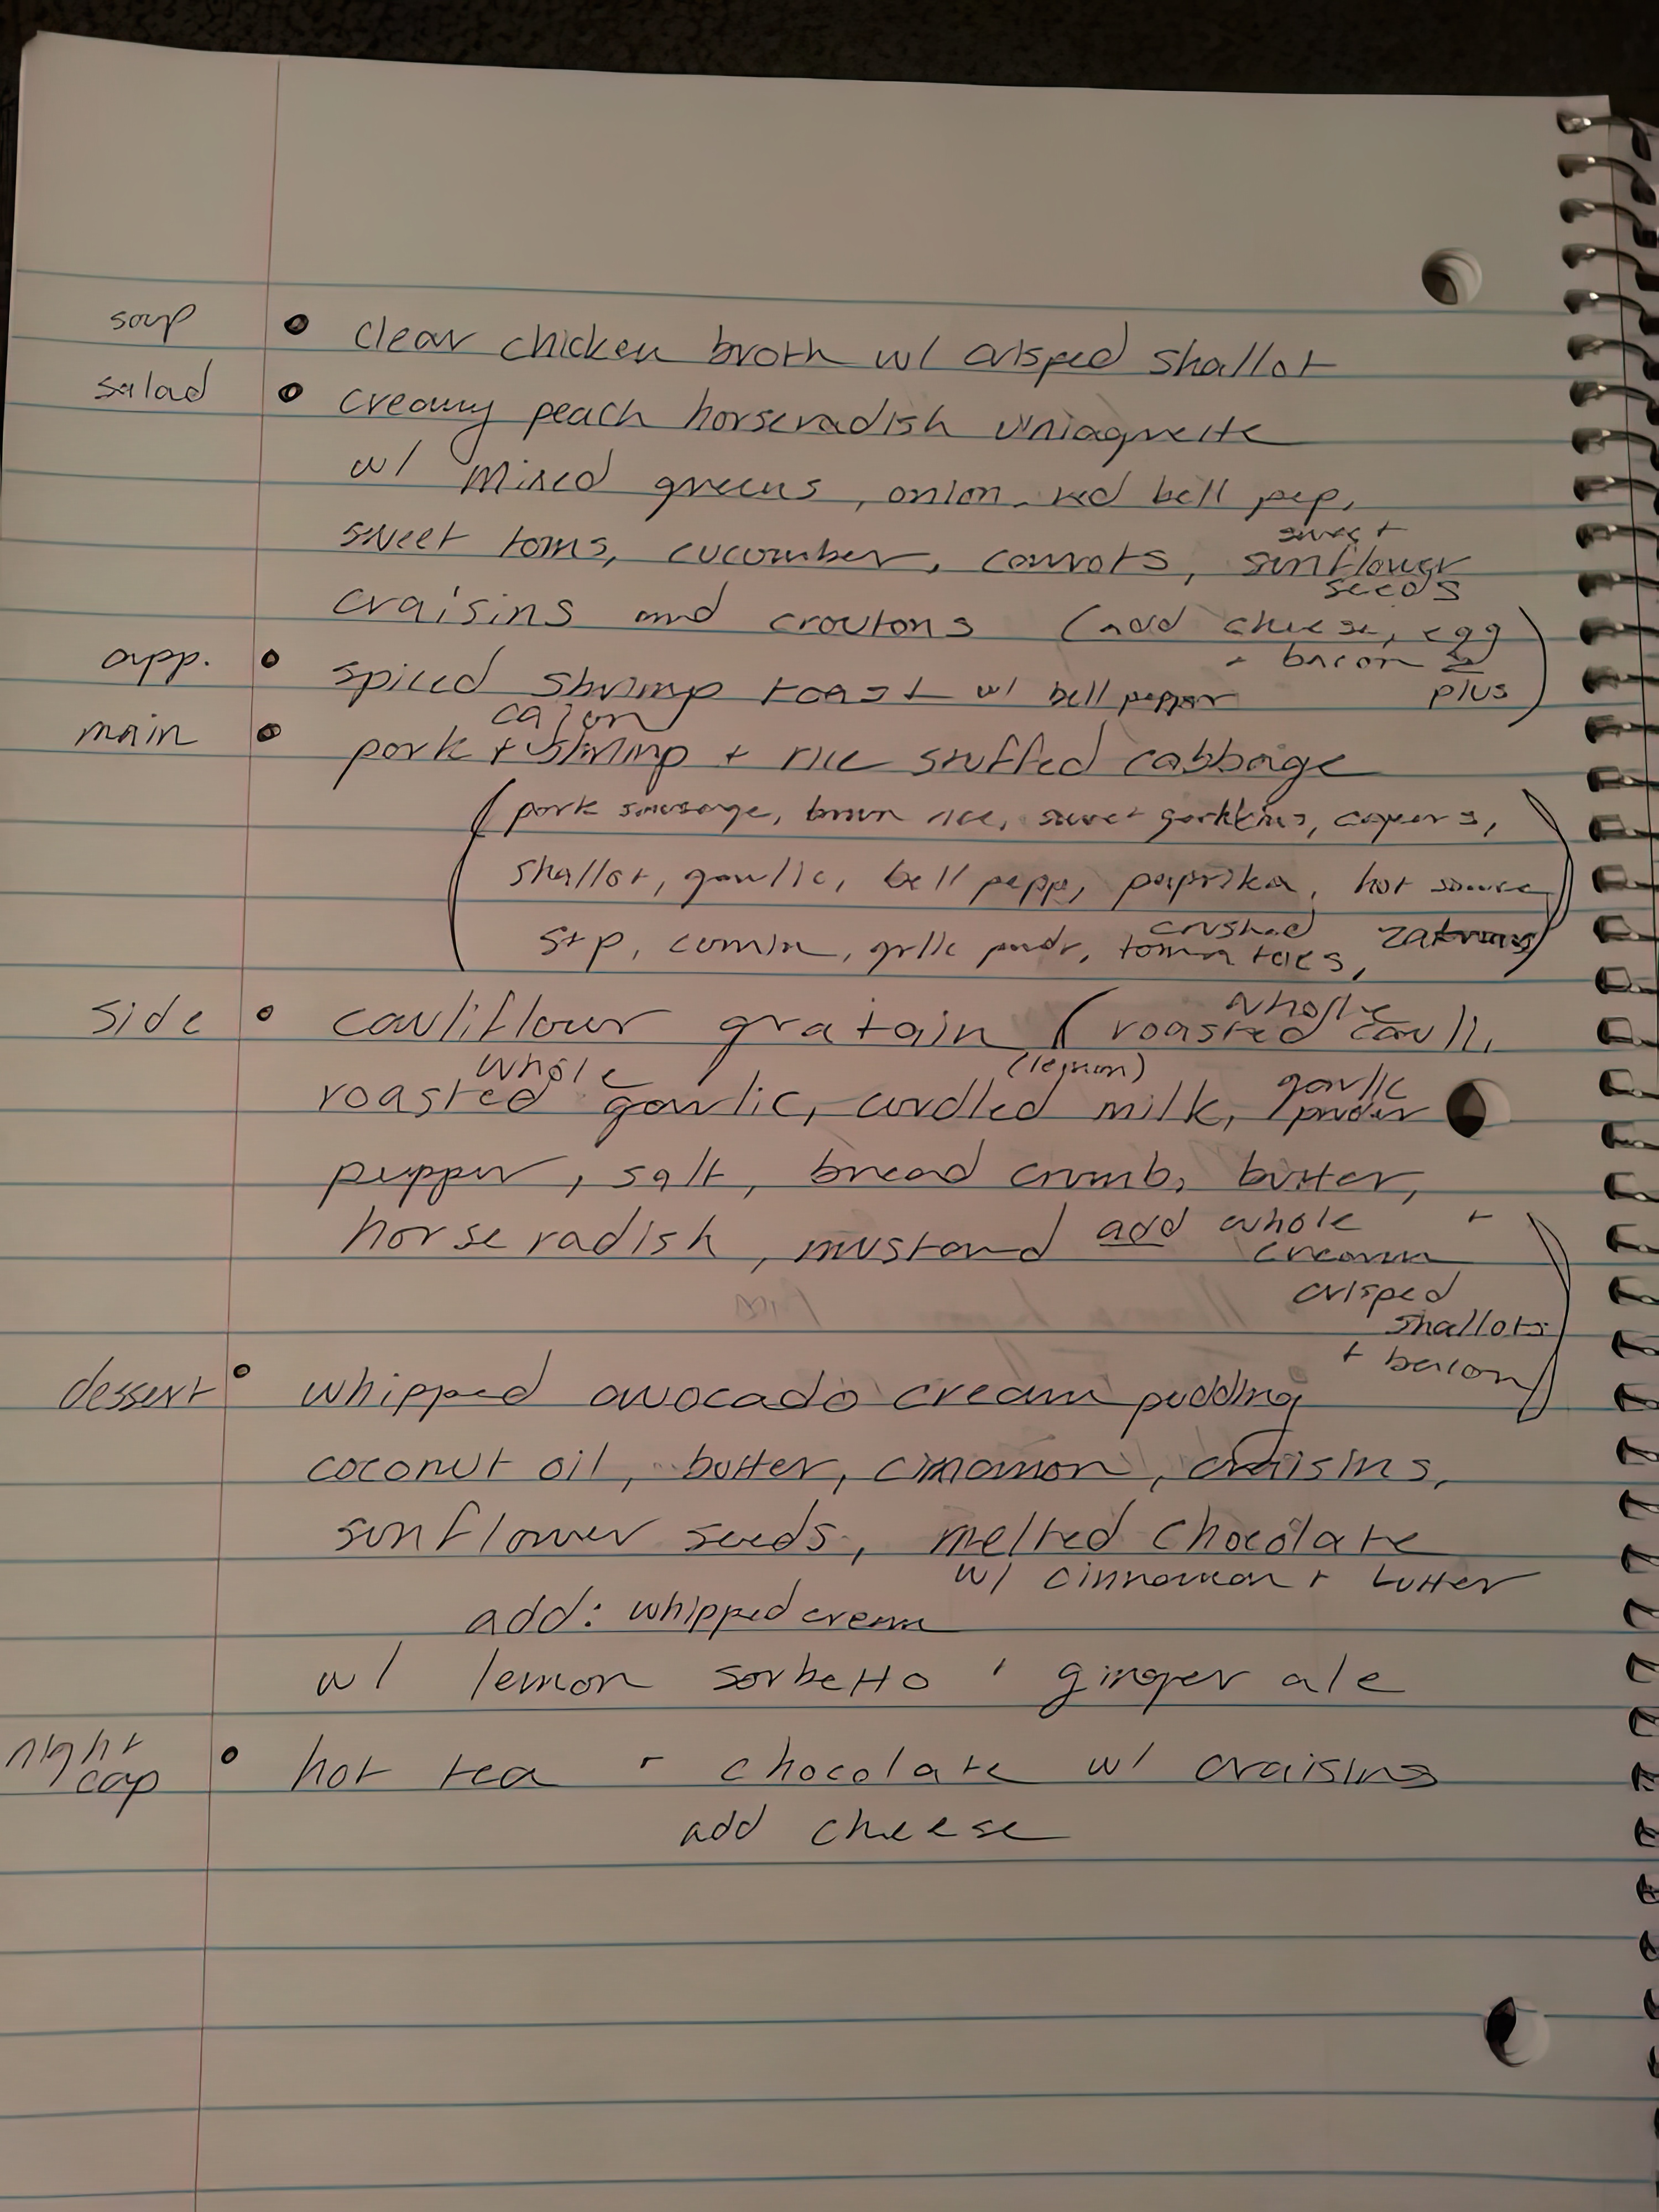 soup • clear chicken broth w/ crisped shallot
salad • creamy peach horseradish viniagrette
w/ mixed greens, onion, red bell pep,
sweet toms, cucumber, carrots, sweet + sunflower seeds
craisins and croutons (add cheese, egg
+ bacon
plus)
app. • spiced shrimp toast w/ bell pepper
main • pork + cajon shrimp + rice stuffed cabbage
(pork sausage, brown rice, sweet gerkins, capers,
shallot, garlic, bell pepp, paprika, hot sauce
s+p, cumin, grlic powdr, crushed tomatoes,
side • cauliflour gratain (whole roasted cauli,
roasted whole garlic, (lemon) curdled milk, garlic powder
pepper, salt, bread crumb, butter,
horseradish, mustard add whole cream +
crisped
shallots
+ bacon)
dessert • whipped avocado cream pudding
coconut oil, butter, cinnamon, craisins,
sunflower seeds, melted chocolate
w/ cinnamon + butter
add: whipped cream
w/ lemon sorbetto + ginger ale
night cap • hot tea + chocolate w/ craisins
add cheese